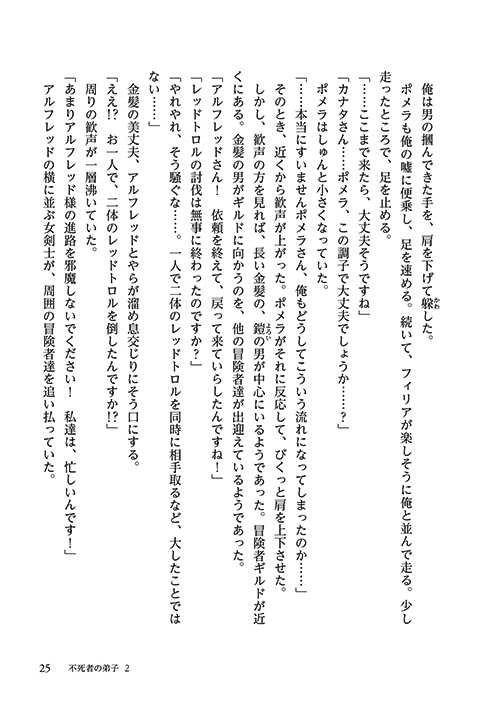 俺は男の摑んできた手を、肩を下げて躱した。
かわ
ポメラも俺の嘘に便乗し、足を速める。続いて、フィリアが楽しそうに俺と並んで走る。少し
走ったところで、足を止める。
「……ここまで来たら、大丈夫そうですね」
「カナタさん……ポメラ、この調子で大丈夫でしょうか……?」
ポメラはしゅんと小さくなっていた。
「……本当にすいませんポメラさん、俺もどうしてこういう流れになってしまったのか……」
そのとき、近くから歓声が上がった。ポメラがそれに反応して、びくっと肩を上下させた。
しかし、歓声の方を見れば、長い金髪の、鎧の男が中心にいるようであった。冒険者ギルドが近
よろい
くにある。金髪の男がギルドに向かうのを、他の冒険者達が出迎えているようであった。
「アルフレッドさん! 依頼を終えて、戻って来ていらしたんですね!」
「レッドトロルの討伐は無事に終わったのですか?」
「やれやれ、そう騒ぐな……。一人で二体のレッドトロルを同時に相手取るなど、大したことでは
ない……」
金髪の美丈夫、アルフレッドとやらが溜め息交じりにそう口にする。
「ええ!? お一人で、二体のレッドトロルを倒したんですか!?」
周りの歓声が一層沸いていた。
「あまりアルフレッド様の進路を邪魔しないでください! 私達は、忙しいんです!」
アルフレッドの横に並ぶ女剣士が、周囲の冒険者達を追い払っていた。
25 不死者の弟子 2